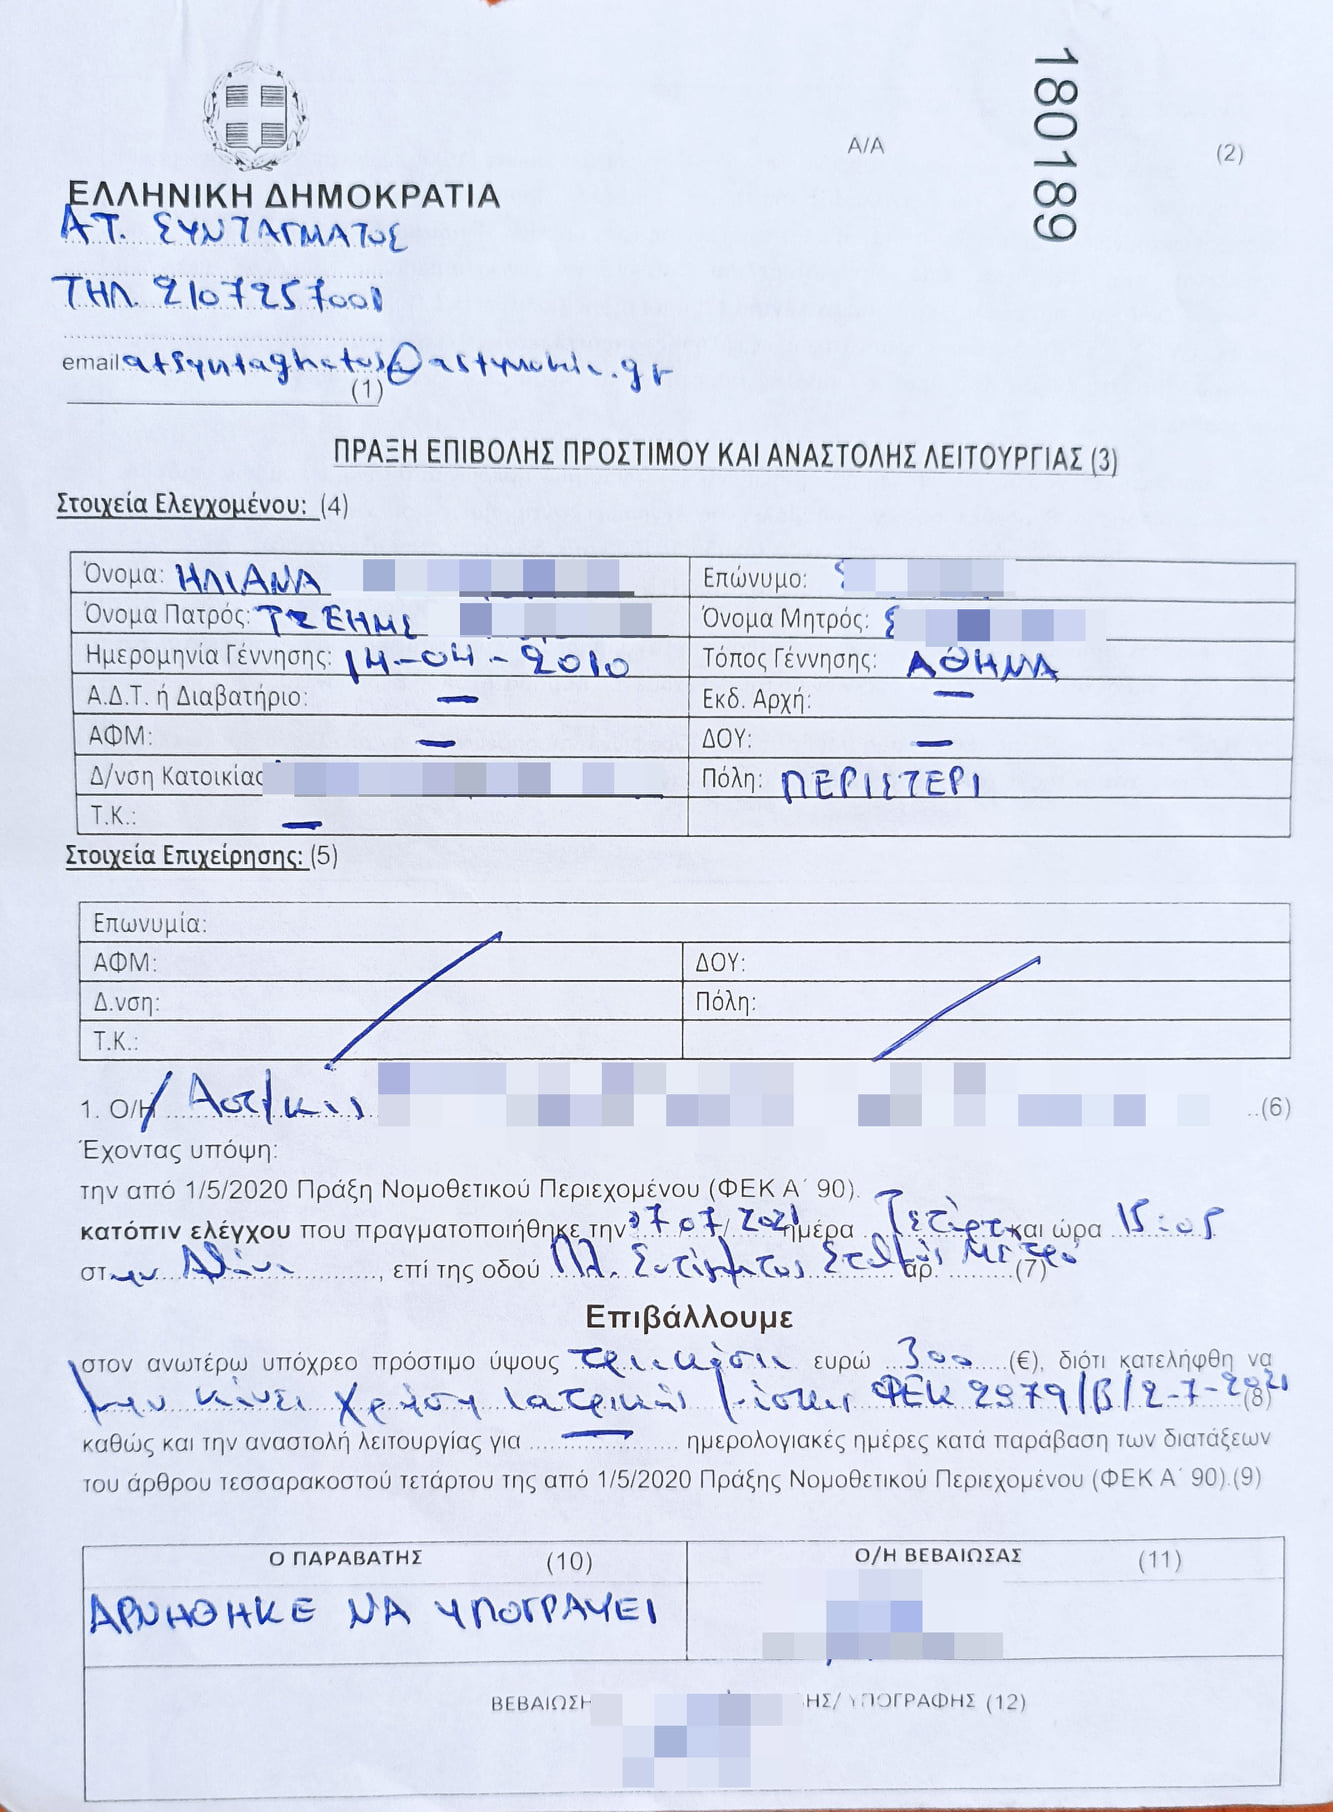 180189
Α/Α (2)
ΕΛΛΗΝΙΚΗ ΔΗΜΟΚΡΑΤΙΑ
Α.Τ. ΣΥΝΤΑΓΜΑΤΟΣ
ΤΗΛ. 2107257001
email:
(1)
ΠΡΑΞΗ ΕΠΙΒΟΛΗΣ ΠΡΟΣΤΙΜΟΥ ΚΑΙ ΑΝΑΣΤΟΛΗΣ ΛΕΙΤΟΥΡΓΙΑΣ (3)
Στοιχεία Ελεγχομένου: (4)
Όνομα: ΗΛΙΑΝΑ Επώνυμο:
Όνομα Πατρός: ΤΖΕΗΜΣ Όνομα Μητρός:
Ημερομηνία Γέννησης: 14-04-2010 Τόπος Γέννησης: ΑΘΗΝΑ
Α.Δ.Τ. ή Διαβατήριο: — Εκδ. Αρχή: —
ΑΦΜ: — ΔΟΥ: —
Δ/νση Κατοικίας Πόλη: ΠΕΡΙΣΤΕΡΙ
Τ.Κ.: —
Στοιχεία Επιχείρησης: (5)
Επωνυμία:
ΑΦΜ: ΔΟΥ:
Δ.νση: Πόλη:
Τ.Κ.:
1. Ο/Η (6)
Έχοντας υπόψη:
την από 1/5/2020 Πράξη Νομοθετικού Περιεχομένου (ΦΕΚ Α΄ 90).
κατόπιν ελέγχου που πραγματοποιήθηκε την 07/07/2021 ημέρα Τετάρτη και ώρα 15:05
στην Αθήνα, επί της οδού Πλ. Συντάγματος Σταθμός Μετρό αρ. (7)
Επιβάλλουμε
στον ανωτέρω υπόχρεο πρόστιμο ύψους τριακόσια ευρώ 300 (€), διότι κατελήφθη να
μην κάνει χρήση ιατρικής μάσκας ΦΕΚ 2879/Β/2-7-2021 (8)
καθώς και την αναστολή λειτουργίας για — ημερολογιακές ημέρες κατά παράβαση των διατάξεων
του άρθρου τεσσαρακοστού τετάρτου της από 1/5/2020 Πράξης Νομοθετικού Περιεχομένου (ΦΕΚ Α΄ 90).(9)
Ο ΠΑΡΑΒΑΤΗΣ (10) Ο/Η ΒΕΒΑΙΩΣΑΣ (11)
ΑΡΝΗΘΗΚΕ ΝΑ ΥΠΟΓΡΑΨΕΙ
ΒΕΒΑΙΩΣΗ ΗΣ/ ΥΠΟΓΡΑΦΗΣ (12)